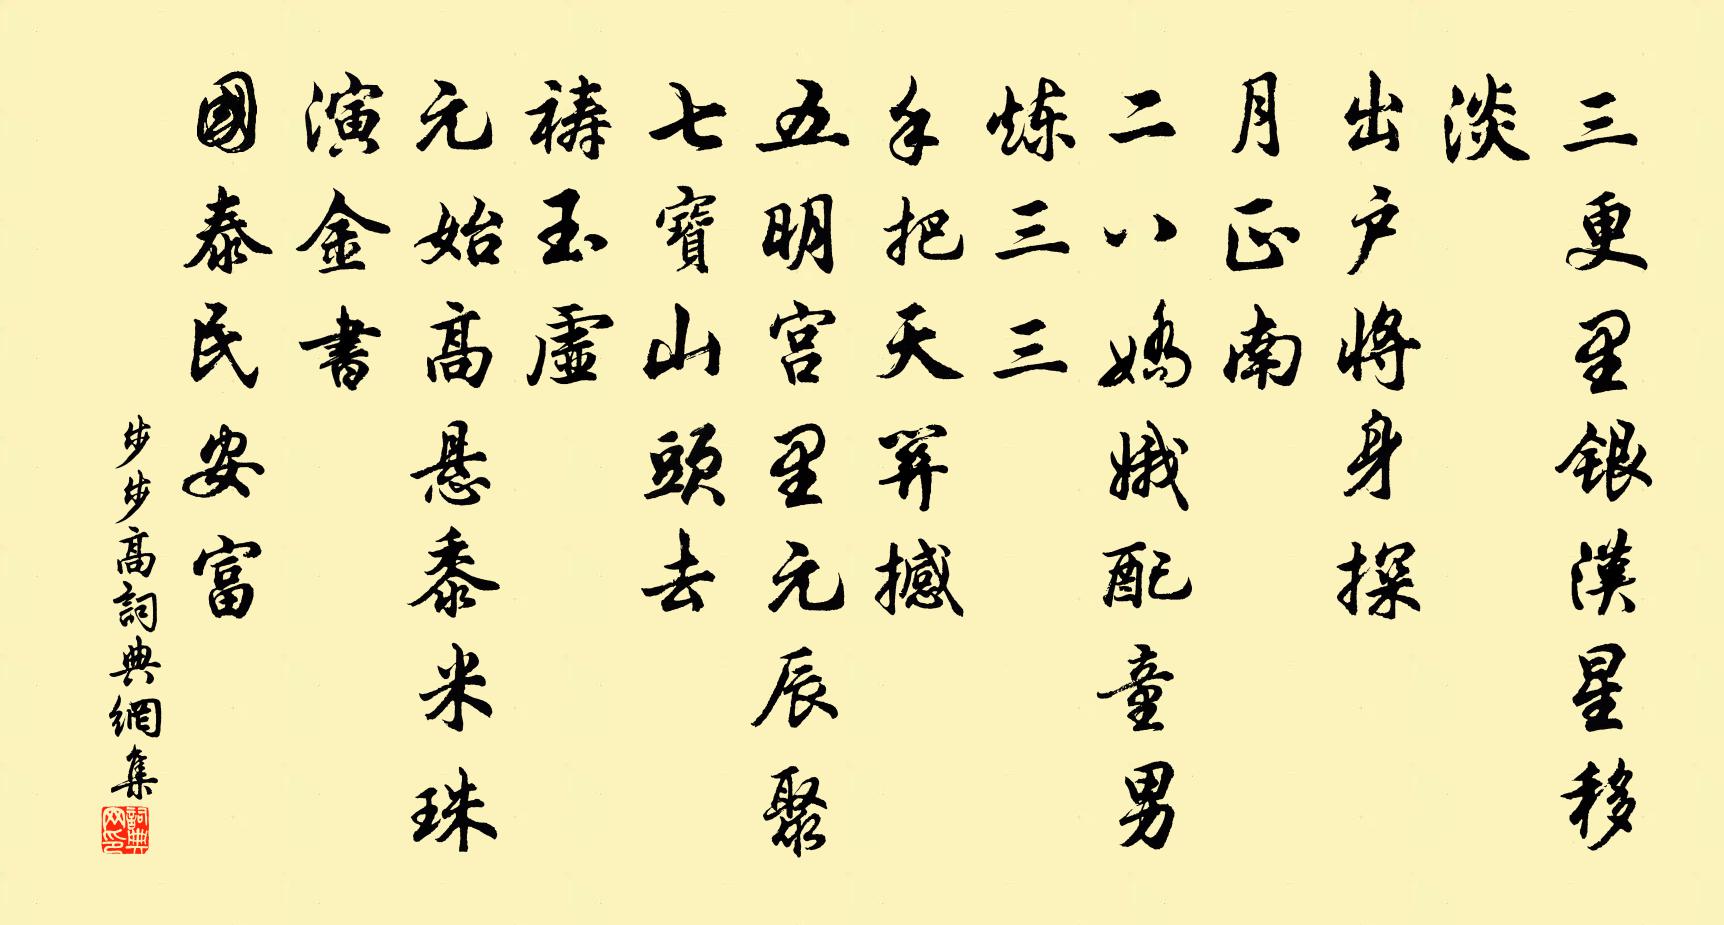 三更里銀漢星移
淡
出户將身探
月正南
二八嬌娥配童男
炼三三
手把天關撼
五明宫里元辰聚
七寶山頭去
禱玉虛
元始高悬黍米珠
演金書
國泰民安富
步步高詞典網集
詞典网印